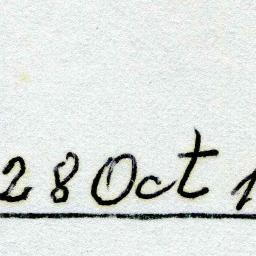 28 Oct 1